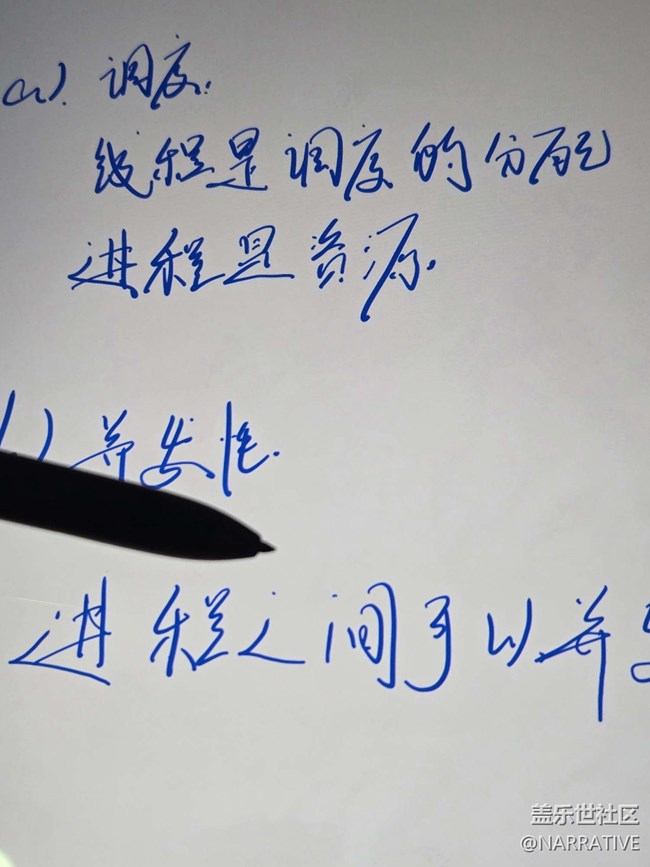 a). 调度.
线程是调度的分配
进程是资源.
) 并发性.
进程之间可以并
盖乐世社区
@NARRATIVE